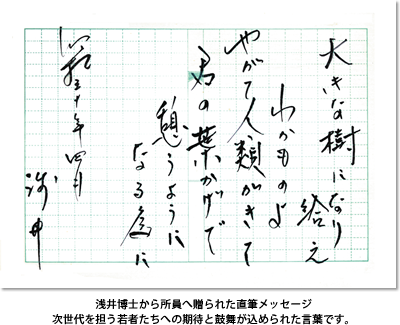 大きな樹になり給え
わかものよ
やがて人類がきて
君の葉かげで
憩うように
なる
五十年四月
浅井
浅井博士から所員へ贈られた直筆メッセージ
次世代を担う若者たちへの期待と鼓舞が込められた言葉です。